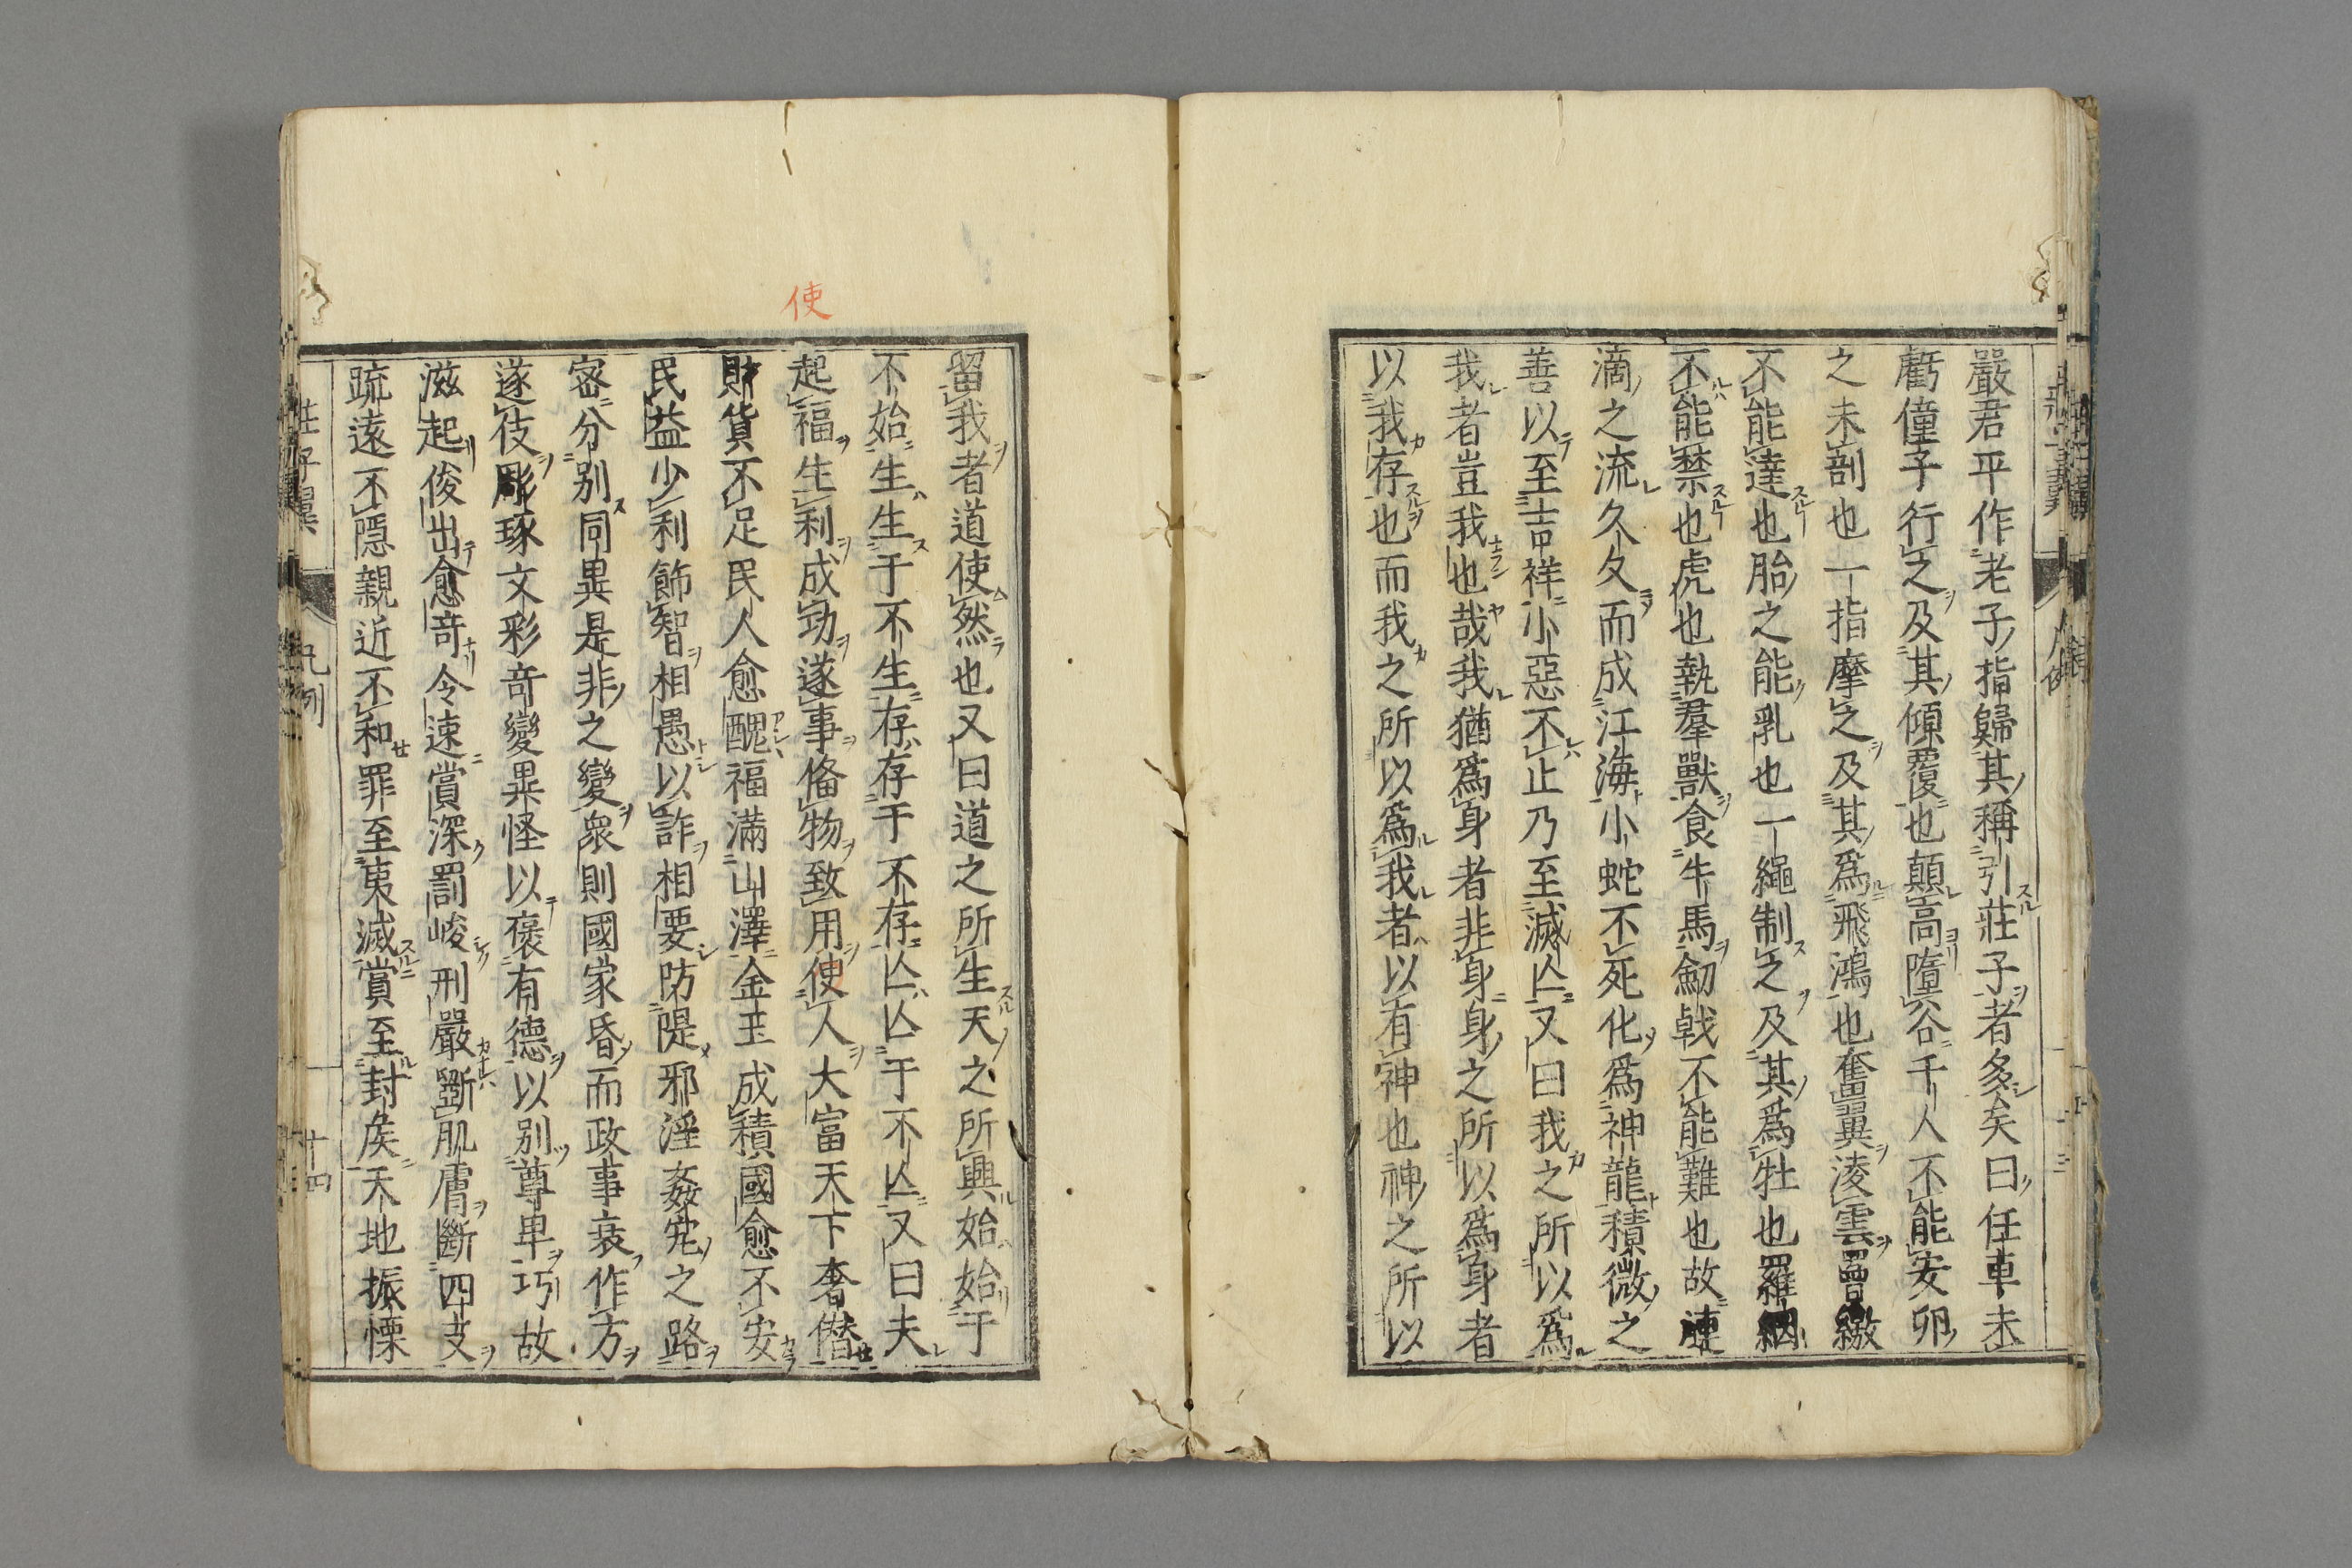 嚴君平作老子指歸其稱引莊子者多矣曰任車未
虧僮子行之及其傾覆也顛高墮谷千人不能安卵
之未剖也一指摩之及其爲飛鴻也奮翼淩雲罾繳
不能達也胎之能乳也一繩制之及其爲牡也羅網
不能禁也虎也執羣獸食牛馬劒戟不能難也故漣
滴之流久久而成江海小蛇不死化爲神龍積微之
善以至吉祥小惡不止乃至滅亾又曰我之所以爲
我者豈我也哉我猶爲身者非身身之所以爲身者
以我存也而我之所以爲我者以有神也神之所以
留我者道使然也又曰道之所生天之所興始始于
不始生生于不生存存于不存亾亾于不亾又曰夫
起福生利成功遂事偹物致用使人大富天下奢僭
財貨不足民人愈醜福滿山澤金玉成積國愈不安
民益少利飾智相愚以詐相要防隄邪淫姦宄之路
密分别同異是非之變衆則國家昏而政事衰作方
遂伎彫琢文彩竒變異怪以褒有德以别尊卑巧故
滋起俊出愈竒令速賞深罰峻刑嚴斷肌膚斷四支
疏遠不隱親近不和罪至夷滅賞至封矦天地振慄
使
莊子翼
凡例
十四